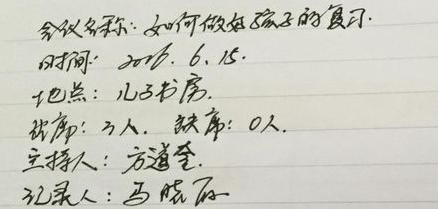 会议名称：如何做好孩子的复习.
时间：2016.6.15.
地点：儿子书房.
出席：3人. 缺席：0人.
主持人：方道奎.
记录人：马晓丽